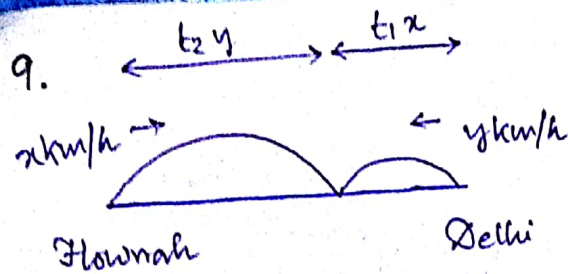 t₂ y t₁ x
9.
x km/h → ← y km/h
Howrah Delhi